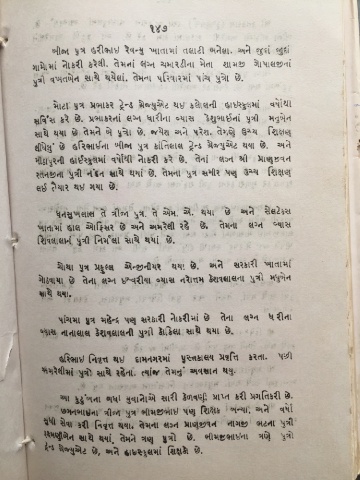 ૧૪૭
બીજા પુત્ર હરીભાઇ રેવન્યુ ખાતામાં તલાટી બનેલા. અને જુદાં જુદાં
ગામોમાં નોકરી કરેલી. તેમનાં લગ્ન ચમારડીના મેતા શામજી ગોપાલજીનાં
પુત્રી વખતબેન સાથે થયેલાં. તેમના પરિવારમાં પાંચ પુત્રો છે.
મોટા પુત્ર પ્રભાકર ટ્રેન્ડ ગ્રેજ્યુએટ થઇ કલોલની હાઇસ્કુલમાં વર્ષોથી
સર્વિસ કરે છે. પ્રભાકરનાં લગ્ન ધારીના વ્યાસ કેશુભાઈનાં પુત્રી મધુબેન
સાથે થયા છે. તેમને બે પુત્રો છે. જયેશ અને પરેશ. તેમણે ઉચ્ચ શિક્ષણ
લીધેલું છે હરિભાઇના બીજા પુત્ર કાન્તિલાલ ટ્રેન્ડ ગ્રેજ્યુએટ થયા છે. અને
મીઠાપુરની હાઈસ્કુલમાં વર્ષોથી નોકરી કરે છે. તેનાં લગ્ન શ્રી પ્રાણજીવન
રતનજીના પુત્રી નંદન સાથે થયાં છે. તેમના પુત્ર સમીર પણ ઉચ્ચ શિક્ષણ
લઇ તૈયાર થઇ ગયા છે.
ધનસુખલાલ તે ત્રીજા પુત્ર તે એમ. એ. થયા છે અને સેલટેક્ષ
ખાતામાં હાલ ઓફિસર છે અને અમરેલી રહે છે, તેમના લગ્ન વ્યાસ
શિવલાલનાં પુત્રી નિર્મળા સાથે થયાં છે.
ચોથા પુત્ર પ્રફુલ્લ એન્જીનીયર થયા છે. અને સરકારી ખાતામાં
ગોઠવાયા છે તેના લગ્ન ઇશ્વરીયા વ્યાસ નરોત્તમ કેશવલાલના પુત્રી મધુબેન
સાથે થયા.
પાંચમા પુત્ર મહેન્દ્ર પણ સરકારી નોકરીમાં છે તેના લગ્ન ધારીના
વ્યાસ નાનાલાલ કેશવલાલની પુત્રી કોકિલા સાથે થયા છે.
હરિભાઇ નિવૃત્ત થઇ દામનગરમાં પુસ્તકાલય પ્રવૃત્તિ કરતા. પછી
અમરેલીમાં પુત્રો સાથે રહેતા. ત્યાંજ તેમનું અવસાન થયું.
આ કુટુંબના બધા યુવાનોએ સારી કેળવણી પ્રાપ્ત કરી પ્રગતિકરી છે.
છગનભાઇના ત્રીજા પુત્ર ભીમજીભાઇ પણ શિક્ષક બન્યા. અને વર્ષો
સુધી સેવા કરી નિવૃત્ત થયા. તેમના લગ્ન પ્રાણજીવન નાગજી ભટના પુત્રી
રુક્ષ્મણીબેન સાથે થયાં. તેમને ત્રણ પુત્રો છે. ભીમજીભાઇના ત્રણે પુત્રો
ટ્રેન્ડ ગ્રેજ્યુએટ છે, અને હાઇસ્કુલમાં શિક્ષકો છે.